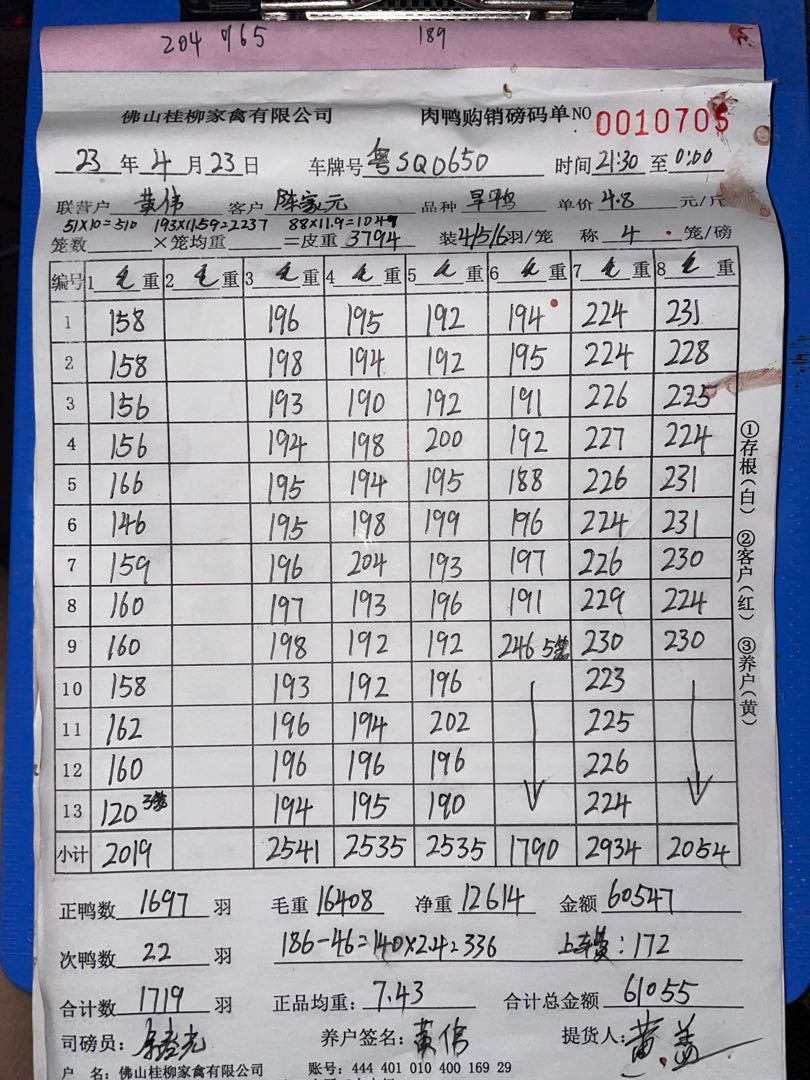 204 965 189
佛山桂柳家禽有限公司 肉鸭购销磅码单 NO 0010705
23 年 4 月 23 日 车牌号 粤SQD650 时间 21:30 至 0:00
联营户 黄伟 客户 陈家元 品种 旱鸭 单价 4.8 元/斤
51×10=510 193×11.59=2237 88×11.9=1047
笼数 ×笼均重 =皮重 3794 装 4/5/6 羽/笼 称 4 笼/磅
编号 1 毛 重 2 毛 重 3 毛 重 4 毛 重 5 毛 重 6 毛 重 7 毛 重 8 毛 重
1 158 196 195 192 194 224 231
2 158 198 194 192 195 224 228
3 156 193 190 192 191 226 225
4 156 194 198 200 192 227 224
5 166 195 194 195 188 226 231
6 146 195 198 199 196 224 231
7 159 196 204 193 197 226 230
8 160 197 193 196 191 229 224
9 160 198 192 192 246 5笼 230 230
10 158 193 192 196 223
11 162 196 194 202 225
12 160 196 196 196 226
13 120 3笼 194 195 190 224
小计 2019 2541 2535 2535 1790 2934 2054
①存根(白) ②客户(红) ③养户(黄)
正鸭数 1697 羽 毛重 16408 净重 12614 金额 60547
次鸭数 22 羽 186-46=140×2.4=336 上车费:172
合计数 1719 羽 正品均重: 7.43 合计总金额 61055
司磅员: 养户签名: 黄伟 提货人: 黄盖
户 名: 佛山桂柳家禽有限公司 账号: 444 401 010 400 169 29